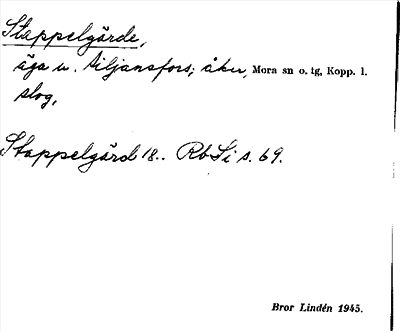 Stappelgärde,
äga u. Siljansfors; åker, Mora sn o. tg, Kopp. l.
slog,
Stappelgärd 18.. RbSi s. 69.
Bror Lindén 1945.